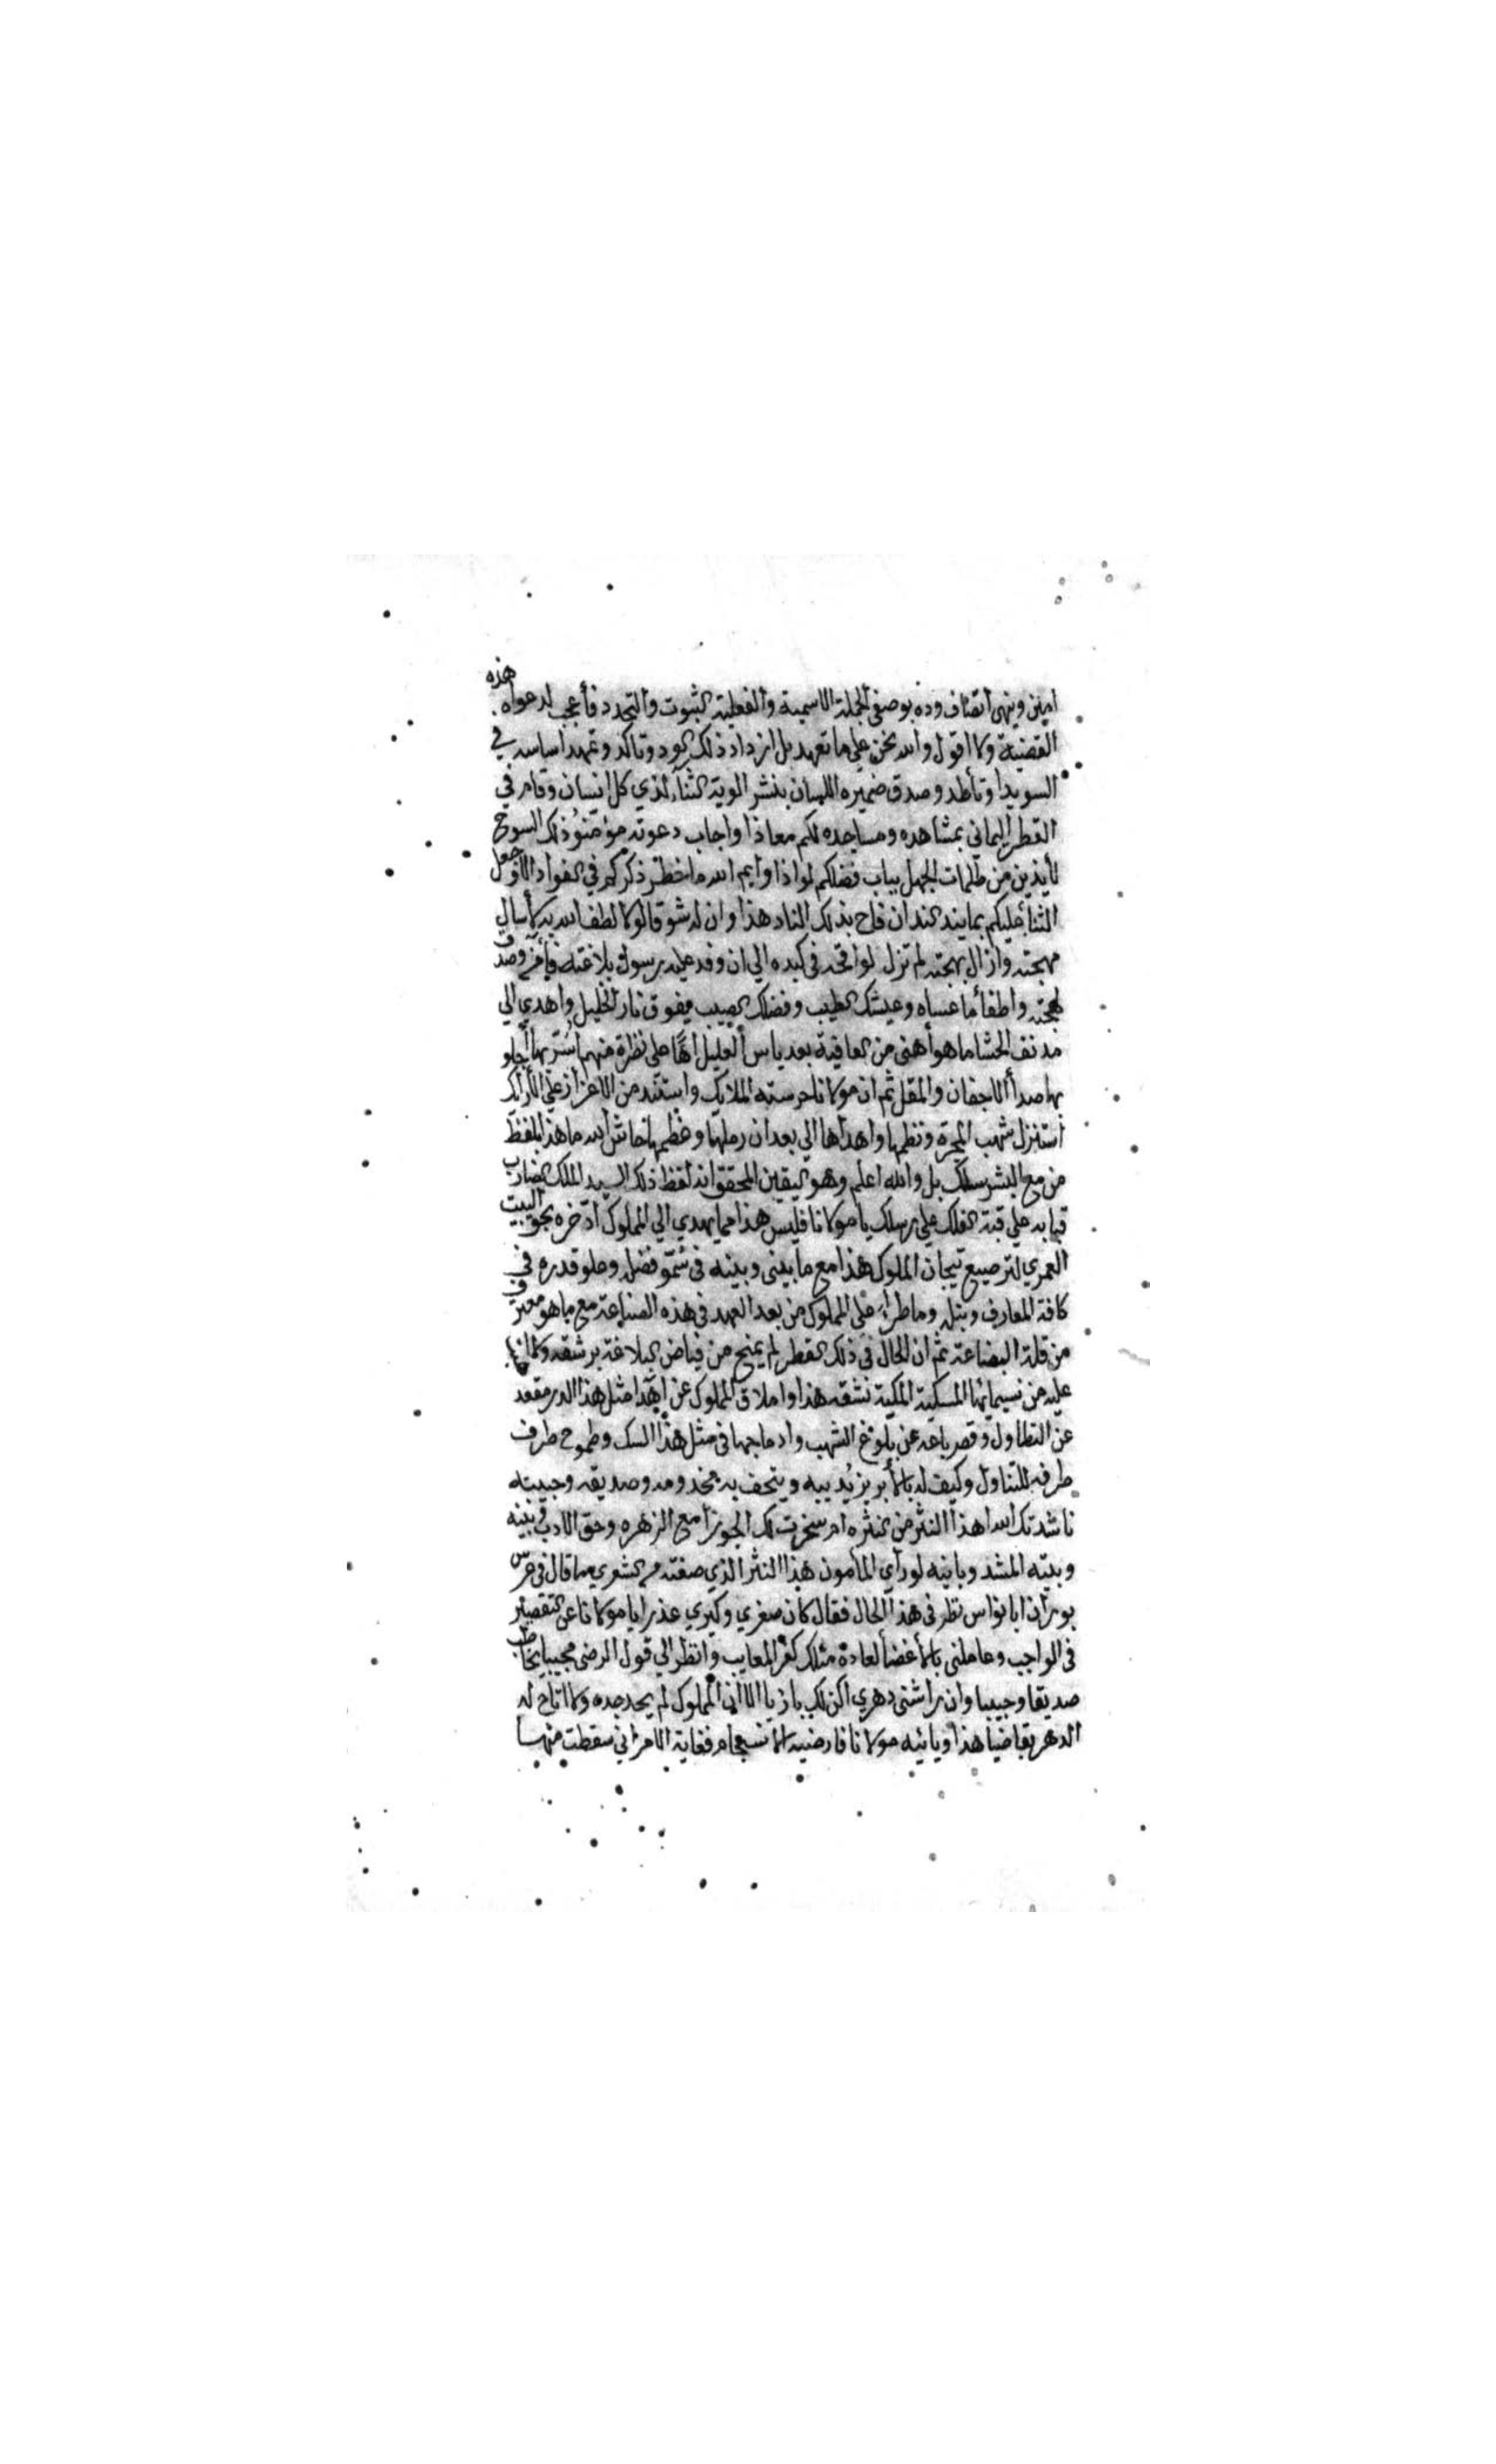 امين وينهى اتصاف وده بوصفي الجملة الاسمية والفعلية الثبوت والتجدد فأعجب لدعواه هذه
القضية ولا اقول والله نحن على ما تعهد بل ازداد ذلك الود وتاكد وتمهد اساسه في
السويدا وتأطد وصدق ضميره اللسان بنشر الوية الثناء لذي كل انسان وقام في
القطر اليماني بمشاهده ومساجده لكم معاذا واجاب دعوته مؤمنو ذلك السوح
لأيذين من ظلمات الجهل بباب فضلكم لواذا وايم الله ما خطر ذكركم في الفواد الا وجعل
الثنا عليكم بما يند الند ان فاح بذلك الناد هذا وان له شوقا لولا لطف الله به لأسال
مهجته وازال بهجته لم تزل لواقحه في كبده الي ان وفد عليه رسول بلاغتك وصدق
لهجته واطفأ ما عساه وعيشك الطيب وفضلك الصيب يفوق نار الخليل واهدي الي
مدنف الحشا ما هو أهنى من العافية بعد ياس العليل على نظرة منهم أسر بها أجلو
بها صدأ الاجفان والمقل ثم ان مولانا حرسته الملايك واستند من الاعزاز على الأرايك
استنزل شهب المجرة ونظمها واهداها الي بعد ان رملها وختمها حاش لله ما هذا بلفظ
من مع البشر سلك بل والله اعلم وهو اليقين المحقق انه لفظ ذلك السيد الملك الضارب
قبابه على قبة الفلك على رسلك يا مولانا فليس هذا مما يهدي الي المملوك ادخره بحق البيت
العمري لترصيع تيجان الملوك هذا مع ما بيني وبينه في سمو فضله وعلو قدره في
كافة المعارف ونبله وما طرأ على المملوك من بعد العهد في هذه الصناعة مع ما هو معترف
من قلة البضاعة ثم ان الحال في ذلك القطر لم يمنح من فياض البلاغة برشفه ولا
عليه من نسيماتها المسكية المكية نشقه هذا واملاق المملوك عن اهدا مثل هذا الدر مقعد
عن التطاول وقصر باعه عن بلوغ الشهب وادماجها في مثل هذا السك وطموح طرف
طرفه للتناول وكيف له بالأبريز يذيبه ويتحف به مخدومه وصديقه وحبيبه
ناشدتك الله اهذا النثر من النثره ام سخرت لك الجوزا مع الزهره وحق الادب وبنيه
وبيته المشد وبانيه لو رأي المأمون هذا النثر الذي صفته من الشعري مما قال في عرس
بوران ابا نواس نظر في هذا الحال فقال كان صغري وكبري عذرا يا مولانا عن التقصير
في الواجب وعاملني بالأغضا لعادة مثلك كفر المعايب وانظر الي قول الرضى مجيبا يخاطب
صديقا وحبيبا وان راشني دهري اكن لك بازيا الا أن المملوك لم يجد جده ولا اتاح له
الدهر بقاضيا هذا ويا نيه مولانا فارضيه الانسجام فغاية الامر اني سقطت منهما